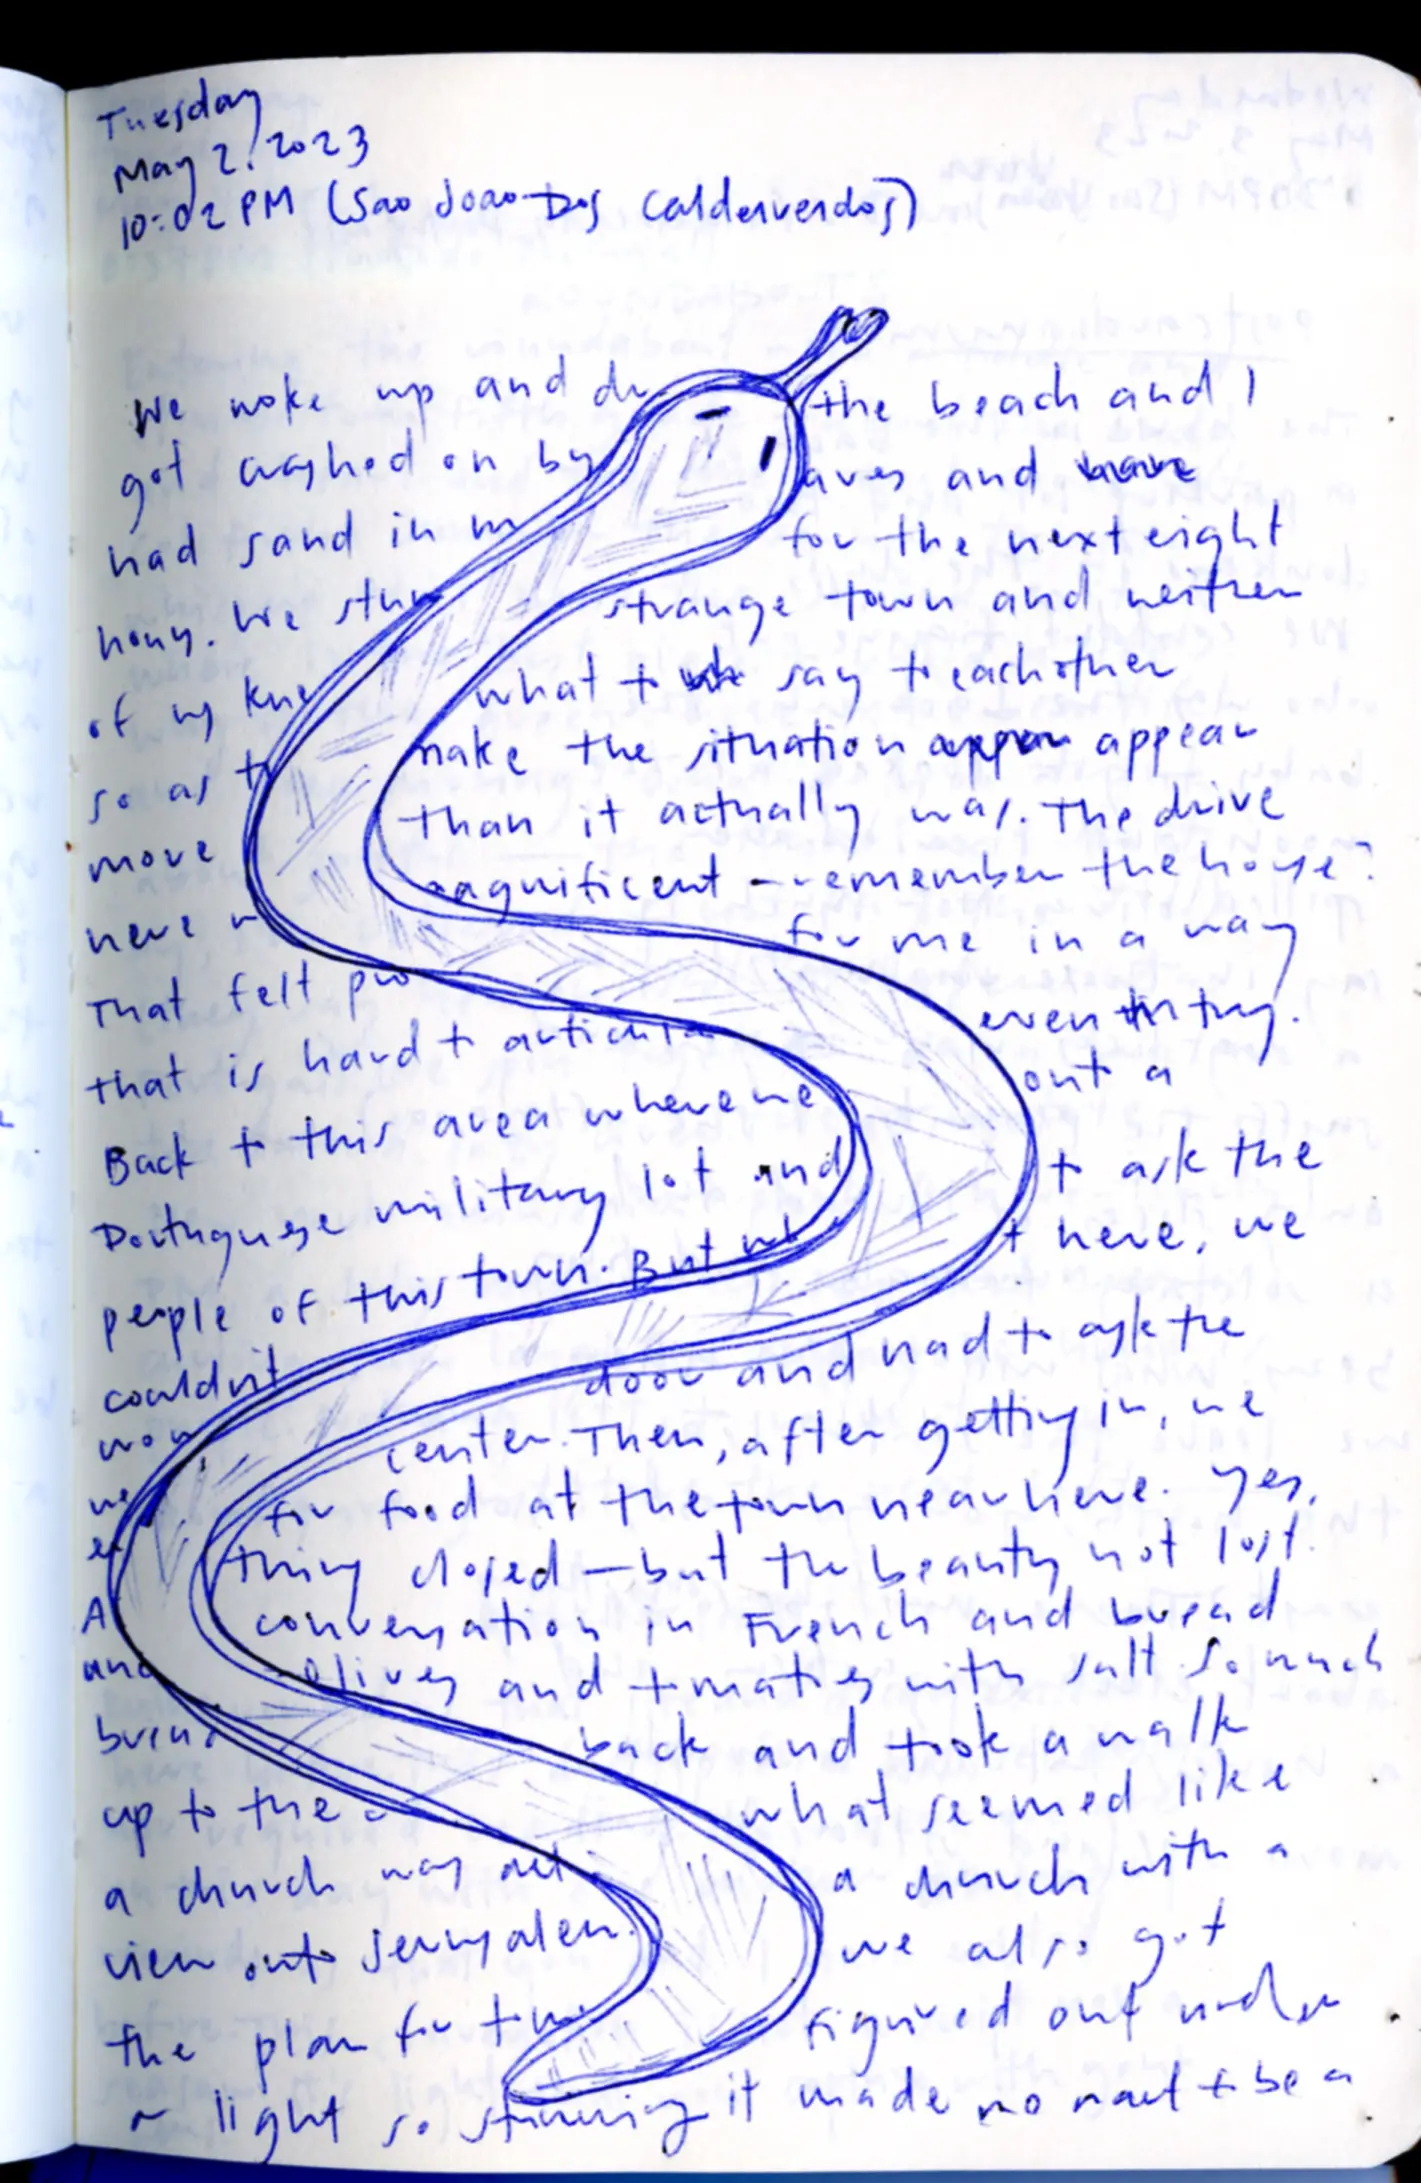 Tuesday
May 2, 2023
10:02 PM (Sao Joao Dos Caldeireiros)
We woke up and the beach and I
got crashed on by aves and
had sand in for the next eight
hours. We strange town and neither
of us kne what to say to each other
so as t make the situation appear
move than it actually was. The drive
here magnificent - remember the house?
That felt for me in a way
that is hard to even try.
Back to this area where we out a
Portuguese military lot and to ask the
people of this town. But t here, we
couldn't door and had to ask the
center. Then, after getting in, we
we for food at the town near here. Yes,
thing closed – but the beauty not lost.
A conversation in French and bread,
and olives and tomatoes with salt. So much
back and took a walk
up to the what seemed like
a church a church with a
view onto Jerusalem. we also got
the plan for figured out under
a light so stunning it made me want to be a